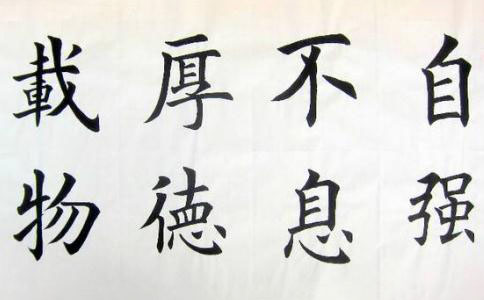 自强
不息
厚德
載物